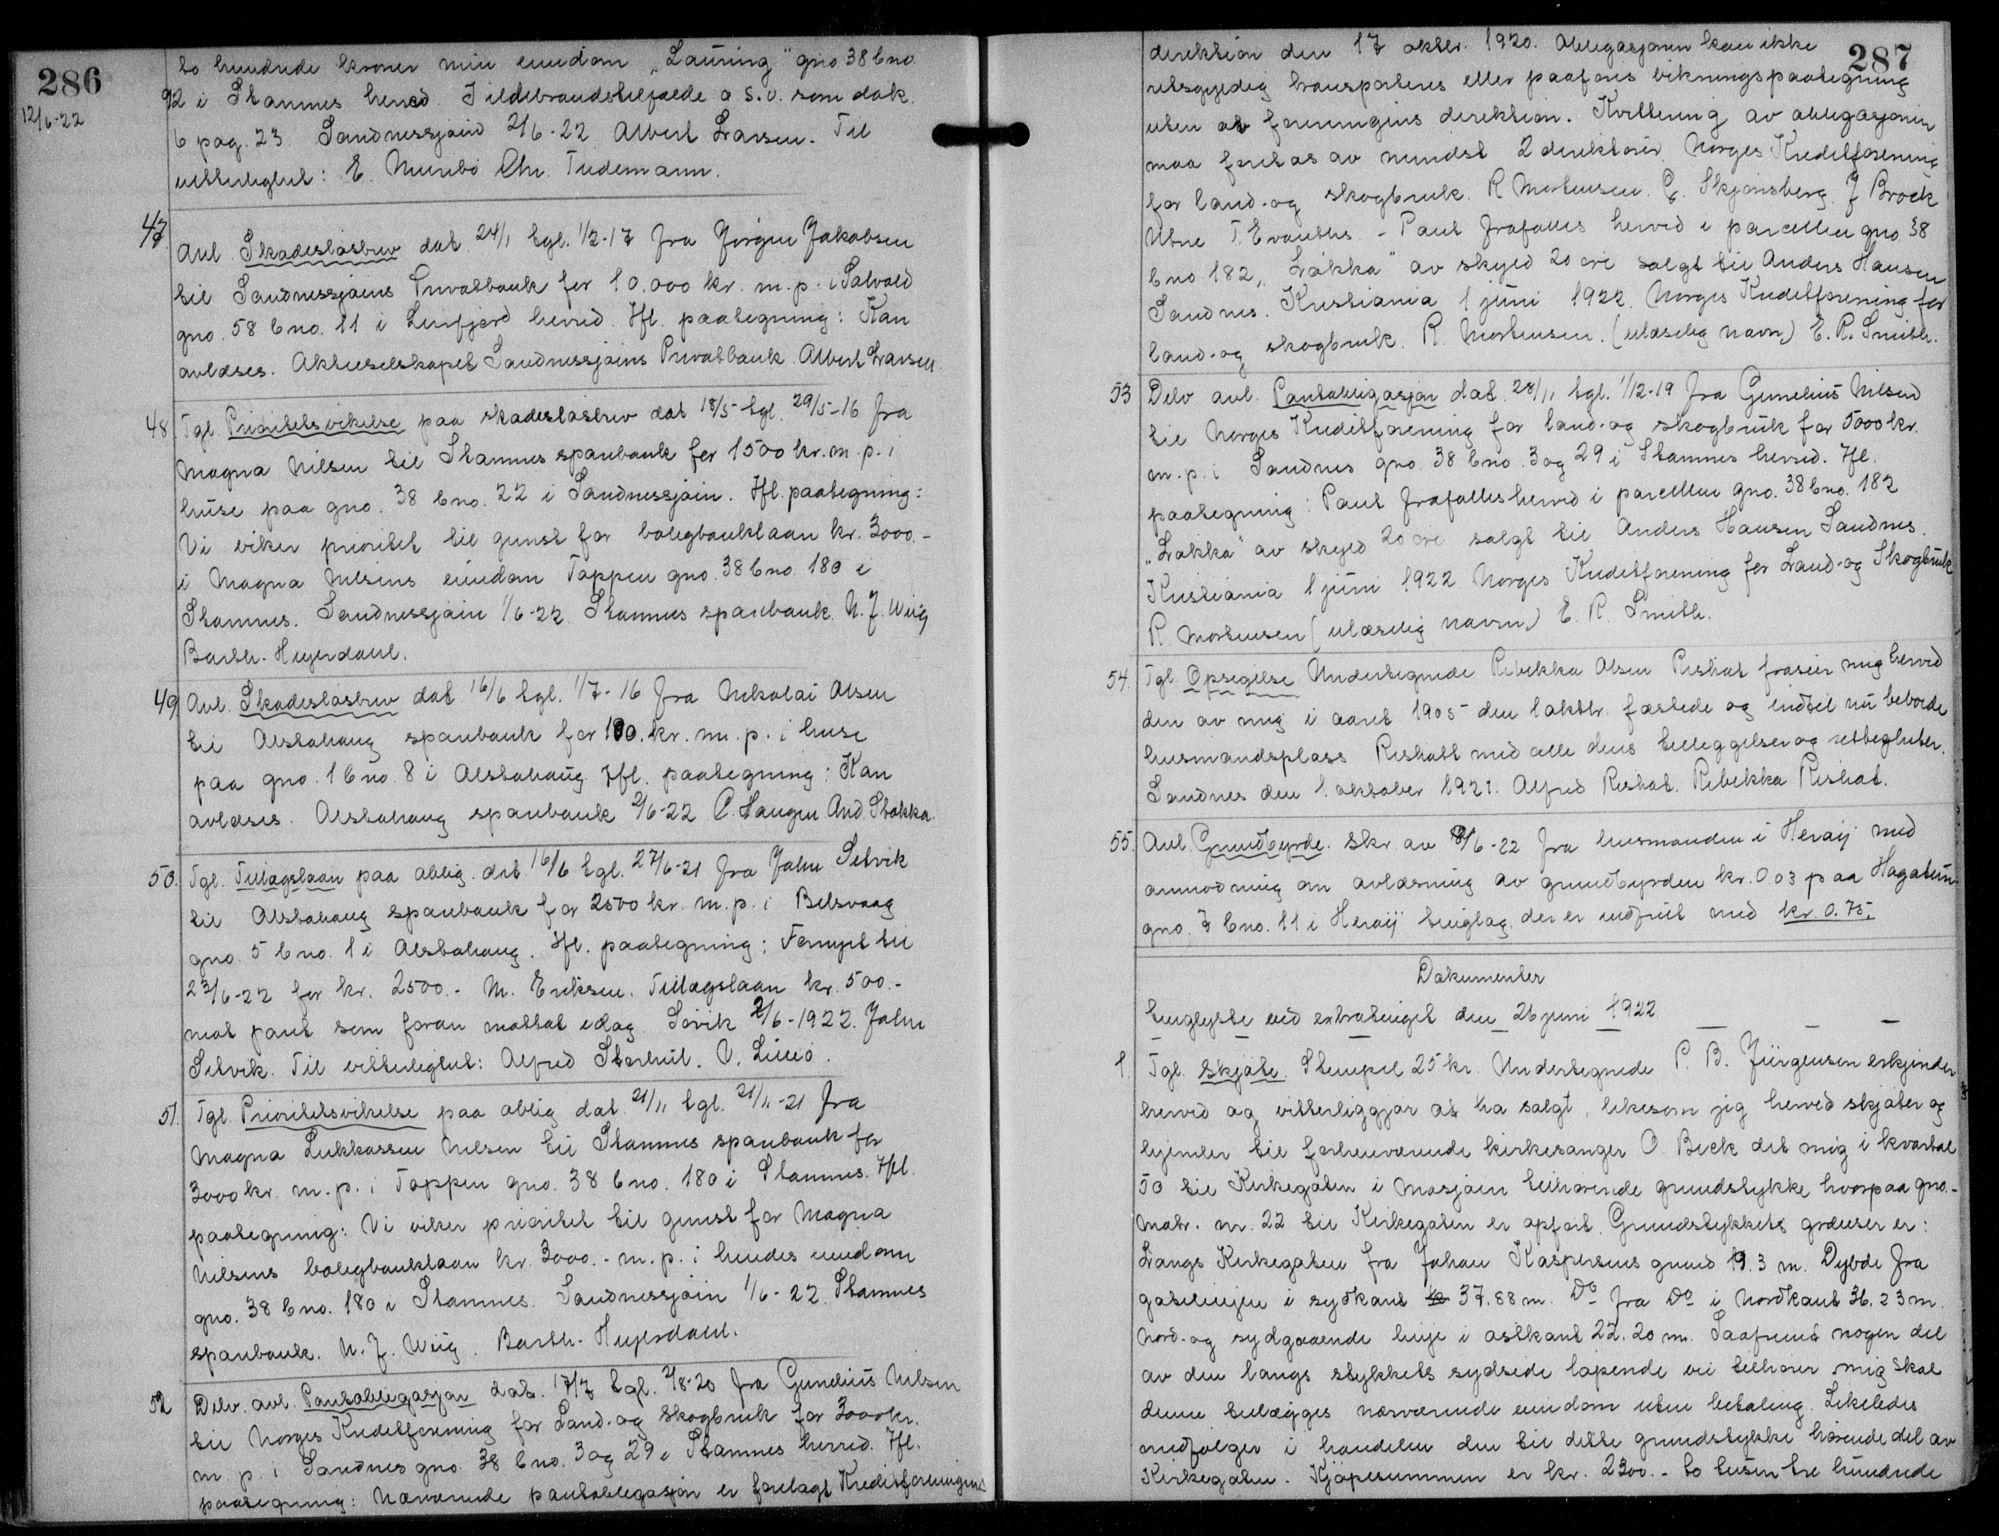 286
12/6-22
to hundrede kroner min eiendom „Lauring" gno 38 bno
92 i Stamnes herred. I ildebrandstilfælde o s.v. som dok.
6 pag. 23 Sandnessjøen 2/6-22 Albert Larsen. Til
vitterlighet: E. Munbo Chr. Tidemann.
47. Avl. Skadesløsbrev dat 24/1 tgl. 1/2-17 fra Jørgen Jakobsen
til Sandnessjøens Privatbank for 10,000 kr. m.p. i Salvold
gno. 58 bno. 11 i Leirfjord herred. Hfl. paategning: Kan
avlæses. Aktieselskapet Sandnessjøens Privatbank. Albert Larsen.
48. Tgl. Prioritetsvikelse paa skadesløsbrev dat 18/5 tgl. 29/5-16 fra
Magna Nilsen til Stamnes sparebank for 1500 kr. m. p. i
huse paa gno. 38 bno. 22 i Sandnessjøen. Hfl. paategning:
Vi viker prioritet til gunst for boligbanklaan kr. 3000.-
i Magna Nilsens eiendom Toppen gno. 38 bno. 180 i
Stamnes. Sandnessjøen 1/6-22 Stamnes sparebank. N. J. Wiig
Barth. Heyerdahl.
49 Avl. Skadesløsbrev dat 16/6 tgl. 1/7-16 fra Nikolai Olsen
til Alstahaug sparebank for 100. kr. m. p. i huse
paa gno. 1 bno. 8 i Alstahaug Hfl. paategning: Kan
avlæses. Alstahaug sparebank 2/6-22 O. Haugen And. Stokka.
50. Tgl. Tillægslaan paa oblig. dat 16/6 tgl. 27/6-21 fra John Setvik
til Alstahaug sparebank for 2500 kr. m. p. i Belsvaag
gno 5 bno. 1 i Alstahaug. Hfl. paategning: Fornyet til
23/6-22 for kr. 2500.- M. Eriksen. Tillægslaan kr. 500.-
mot pant som foran mottat idag. Søvik 2/6-1922. John
Setvik. Til vitterlighet: Alfred Storhul. O. Lines.
51. Tgl. Prioritetsvikelse paa oblig dat. 21/11 tgl. 21/11-21 fra
Magna Lukkassen Nilsen til Stamnes sparebank for
3000 kr. m. p. i Toppen gno. 38 bno. 180 i Stamnes. Hfl.
paategning: Vi viker prioritet til gunst for Magna
Nilsens boligbanklaan kr. 3000.- m. p. i hendes eiendom
gno. 38 bno. 180 i Stamnes. Sandnessjøen 1/6-22. Stamnes
sparebank. N. J. Wiig. Barth. Heyerdahl.
52 Delv. avl. Pantobligasjon dat. 17/7 tgl. 2/8-20 fra Gunelius Nilsen
til Norges Kreditforening for Land- og skogbruk for 3000 kr.
m. p. i Sandnes gno. 38 bno. 3 og 29 i Stamnes herred. Hfl.
paategning: Nærværende pantobligasjon er forelagt Kreditforeningens
287
direktion den 17 oktbr. 1920. Obligasjonen kan ikke
retsgyldig transporteres eller paaføres vikningspaategning
uten av foreningens direktion. Kvittering av obligasjonen
maa foretas av mindst 2 direktører. Norges Kreditforening
for land- og skogbruk. R Mortensen. C. Skjønsberg. J Brock
Utne T. Evanths. - Pant frafalles herved i parcellen gno. 38
bno. 182 „Løkka" av skyld 20 øre solgt til Anders Hansen
Sandnes. Kristiania 1 juni 1922. Norges Kreditforening for
land- og skogbruk. R. Mortensen. (ulæselig navn) E. R. Smith.
53 Delv avl. Pantobligasjon dat. 28/11 tgl. 1/12-19 fra Gunelius Nilsen
til Norges Kreditforening for land- og skogbruk for 5000 kr.
m. p. i Sandnes gno. 38 bno. 3 og 29 i Stamnes herred. Hfl.
paategning: Pant frafalles herved i parcellen gno. 38 bno. 182
„Løkka" av skyld 20 øre solgt til Anders Hansen Sandnes.
Kristiania 1 juni 1922 Norges Kreditforening for Land- og Skogbruk
R. Mortensen (ulæselig navn) E. R. Smith.
54. Tgl. Opsigelse Undertegnede Rebekka Olsen Reshat frasier mig herved
den av mig i aaret 1905 den 1 oktbr. fæstede og indtil nu beboede
husmandsplass Reshatt med alle dens tilleggelser og rettigheter.
Sandnes den 1. oktober 1921. Alfred Reshat. Rebekka Reshat.
55. Avl. Grundbyrde. Skr. av 9/6-22 fra lensmanden i Herøy med
anmodning om avlæsning av grundbyrden kr. 0.03 paa Hagatun
gno. 7 bno. 11 i Herøy tinglag der er indfriet med kr. 0.75.
Dokumenter
tinglyste ved extratinget den 26 juni 1922
1. Tgl. Skjøte. Stempel 25 kr. Undertegnede P. B. Jürgensen erkjender
herved og vitterliggjør at ha solgt, likesom jeg herved skjøter og
hjemler til forhenværende kirkesanger O. Bech det mig i kvartal
10 til Kirkegaten i Mosjøen tilhørende grundstykke hvorpaa gno.-
matr. nr. 22 til Kirkegaten er opført. Grundstykkets grænser er:
Langs Kirkegaten fra Johan Kaspersens grund 19.3 m. Dybde fra
gatelinjen i sydkant 37.88 m. Do fra Do i Nordkant 36.23 m.
Nord- og sydgaaende linje i østkant 22.20 m. Saafremt nogen del
av den langs stykkets sydside løpende vei tilhører mig skal
denne tillægges nærværende eiendom uten betaling. Likeledes
medfølger i handelen den til dette grundstykke hørende del av
Kirkegaten. Kjøpesummen er kr. 2300.- to tusen tre hundrede